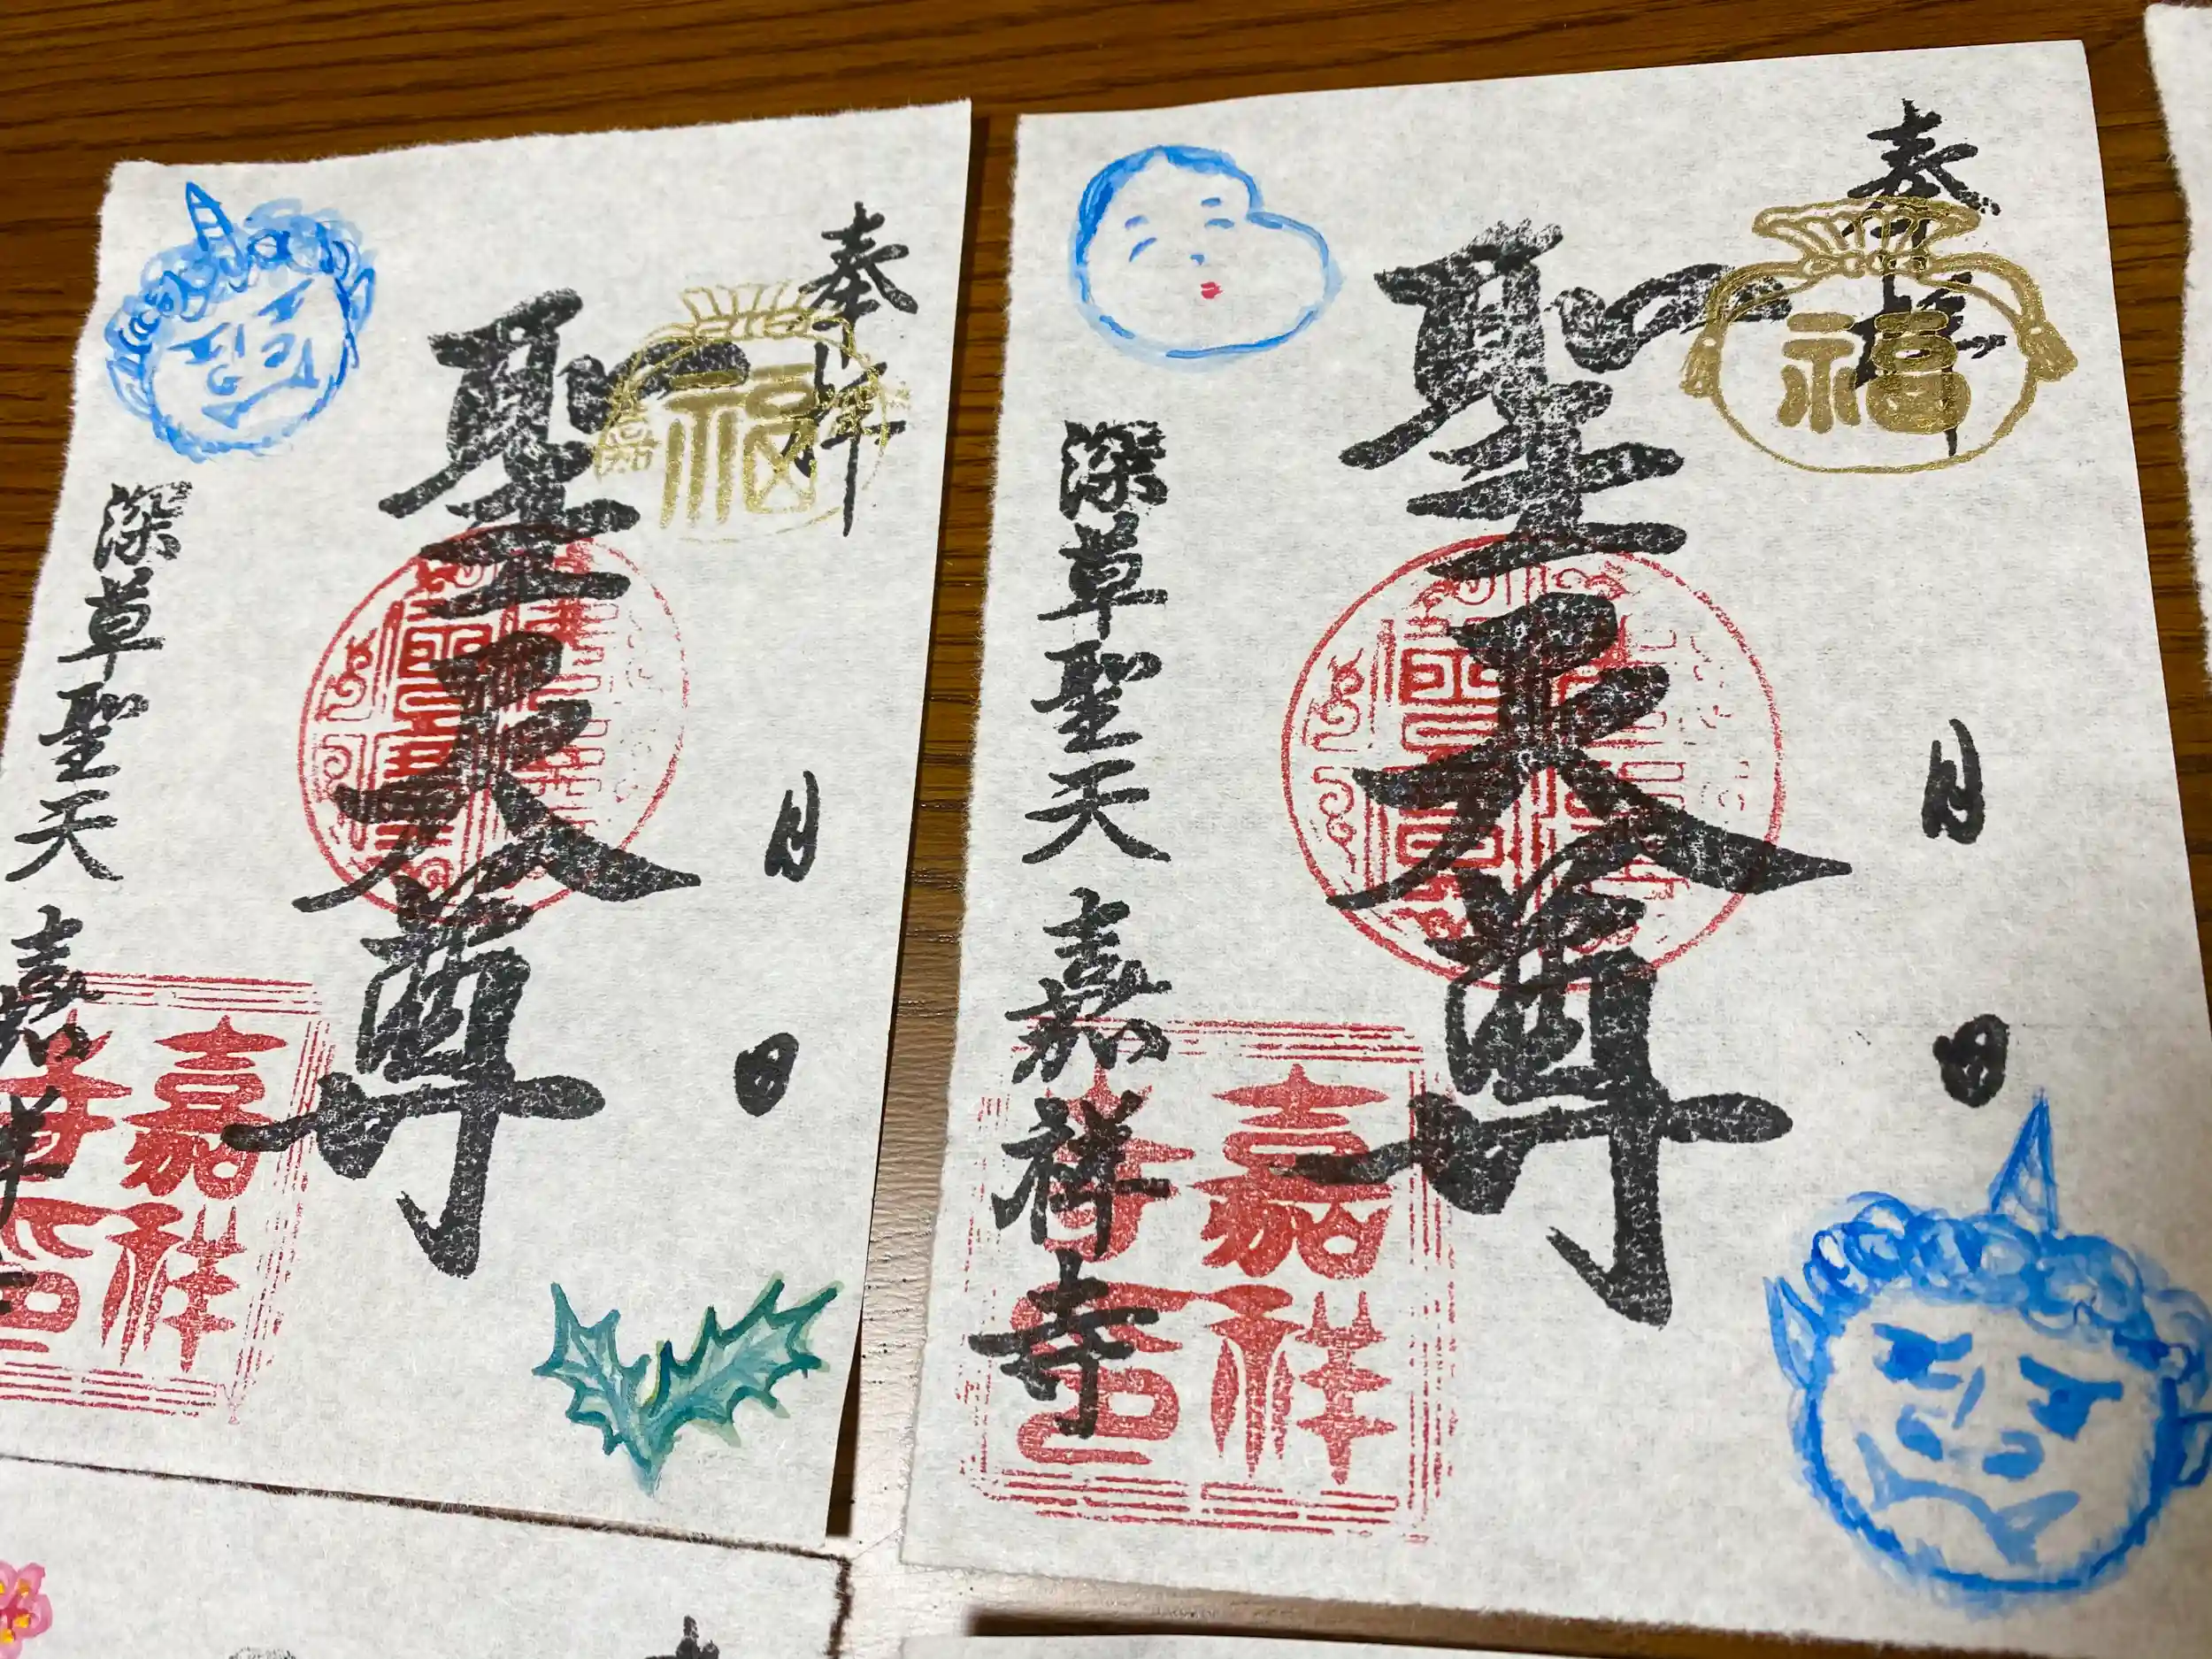 奉拝
福
月
日
聖天尊
深草聖天
嘉祥
嘉祥寺印
奉拝
福
月
日
聖天尊
深草聖天
嘉祥寺
嘉祥寺印